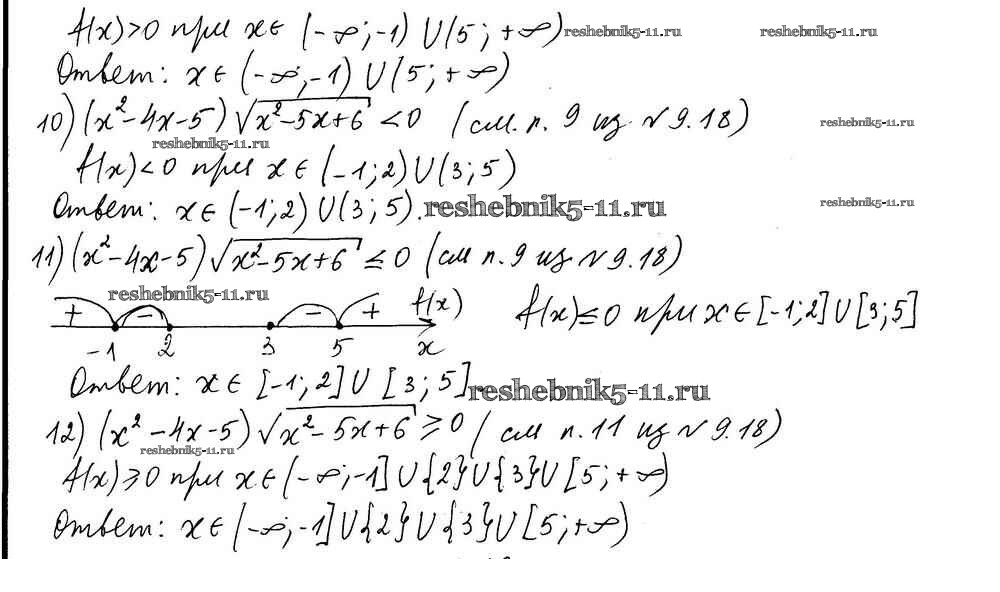 f(x)>0 при x∈ (-∞;-1) U(5;+∞) reshebnik5-11.ru reshebnik5-11.ru
Ответ: x∈ (-∞;-1) U(5;+∞)
10) (x²-4x-5)√(x²-5x+6) <0 (см. п. 9 из №9.18) reshebnik5-11.ru
reshebnik5-11.ru
f(x)<0 при x∈ (-1;2)U(3;5)
Ответ: x∈ (-1;2) U(3;5). reshebnik5-11.ru reshebnik5-11.ru
11) (x²-4x-5)√(x²-5x+6) ≤0 (см п.9 из №9.18)
reshebnik5-11.ru
+ - - + f(x) f(x)≤0 при x∈[-1;2]U[3;5]
-1 2 3 5 x
Ответ: x∈ [-1;2]U [3;5] reshebnik5-11.ru
12) (x²-4x-5)√(x²-5x+6) ≥0 (см п.11 из №9.18)
reshebnik5-11.ru
f(x)≥0 при x∈(-∞;-1] U{2}U{3}U[5;+∞)
Ответ: x∈(-∞;-1]U{2}U{3}U[5;+∞)